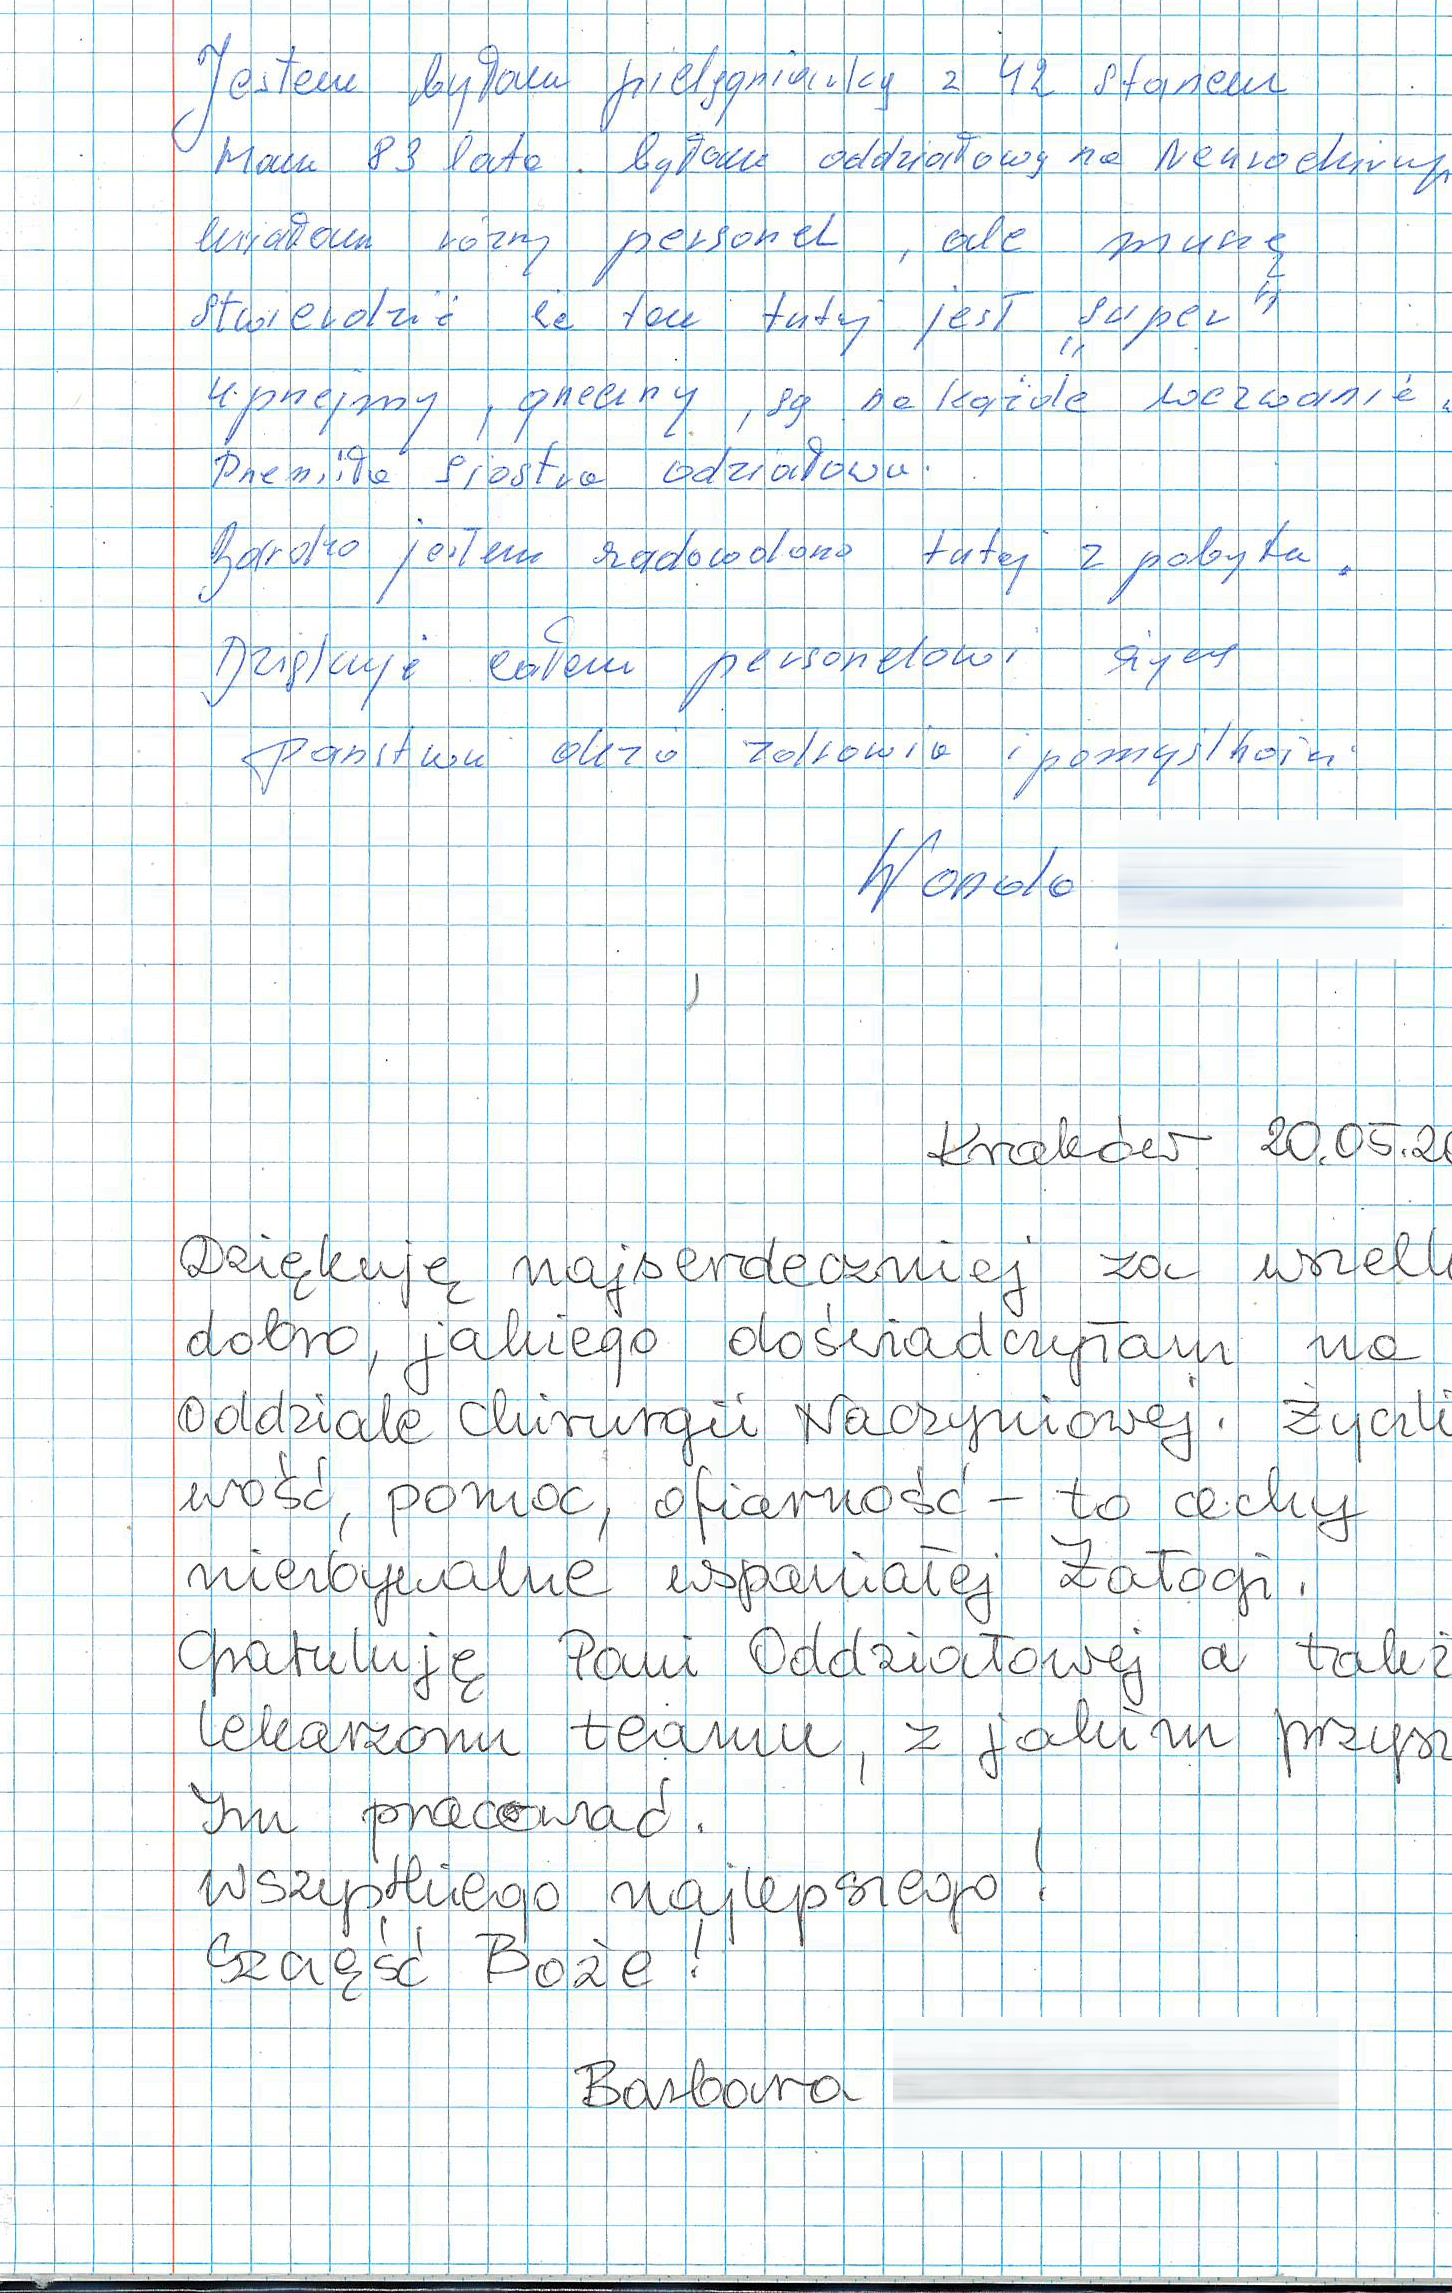 Jestem byłam pielęgniarką z 42 stażem
Mam 83 lata. byłam oddziałową na Neurochirurg
miałam różny personel, ale muszę
stwierdzić że ten tutaj jest „super"
uprzejmy, grzeczny, są na każde wezwanie.
Przemiła siostra odziałowa.
Bardzo jestem zadowolona tutaj z pobytu.
Dziękuję całem personelowi życzę
Państwu dużo zdrowia i pomyślności
Wanda
Kraków 20.05.20
Dziękuję najserdeczniej za wszelk
dobro, jakiego doświadczyłam na
Oddziale Chirurgii Naczyniowej. Życzli
wość, pomoc, ofiarność - to cechy
niezbywalne wspaniałej Załogi.
Gratuluję Pani Oddziałowej a takż
lekarzom teamu, z jakim przysz
Im pracować.
Wszystkiego najlepszego!
Szczęść Boże!
Barbara